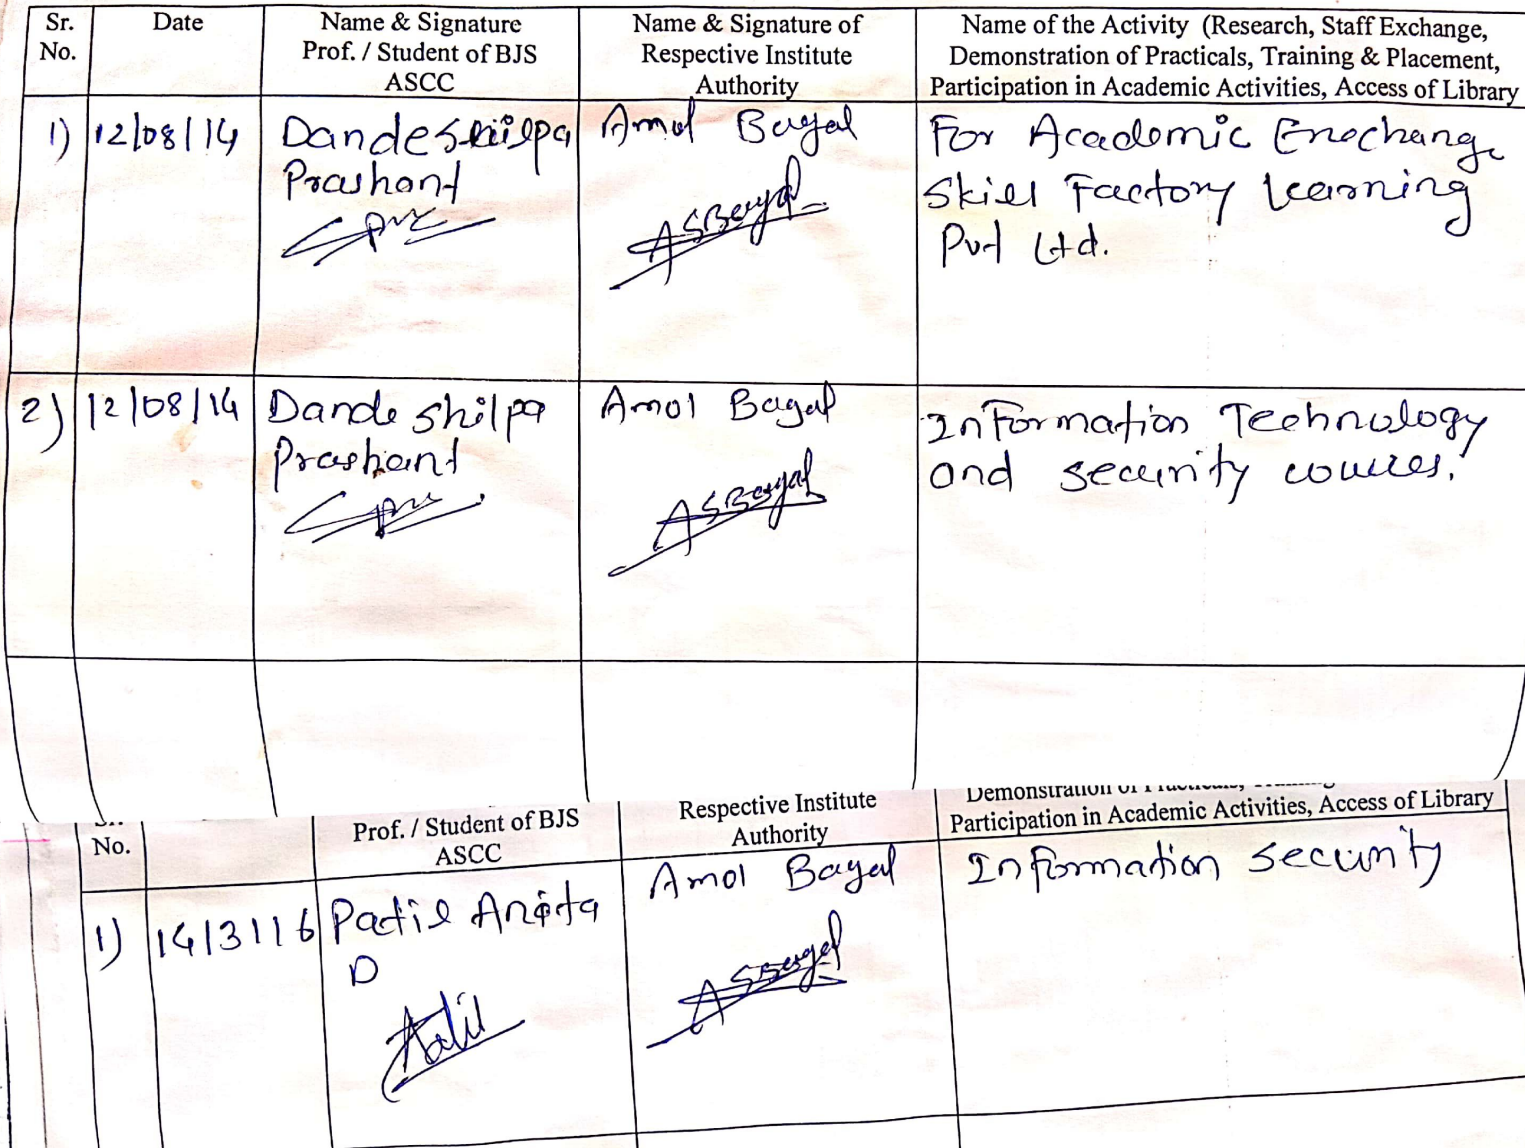 Sr. No.
Date
Name & Signature
Prof. / Student of BJS
ASCC
Name & Signature of
Respective Institute
Authority
Name of the Activity (Research, Staff Exchange,
Demonstration of Practicals, Training & Placement,
Participation in Academic Activities, Access of Library
1)
12/08/14
Dande Shilpa
Prashant
Amol Bagal
ASBagal
For Academic Enochange
Skill Factory Learning
Pvt Ltd.
2)
12/08/14
Dande Shilpa
Prashant
Amol Bagal
ASBagal
Information Technology
and security cources.
No.
Prof. / Student of BJS
ASCC
Respective Institute
Authority
Demonstration of Practicals,
Participation in Academic Activities, Access of Library
1)
14/3/16
Patil Anita
D
Patil
Amol Bagal
ASBagal
Information Security